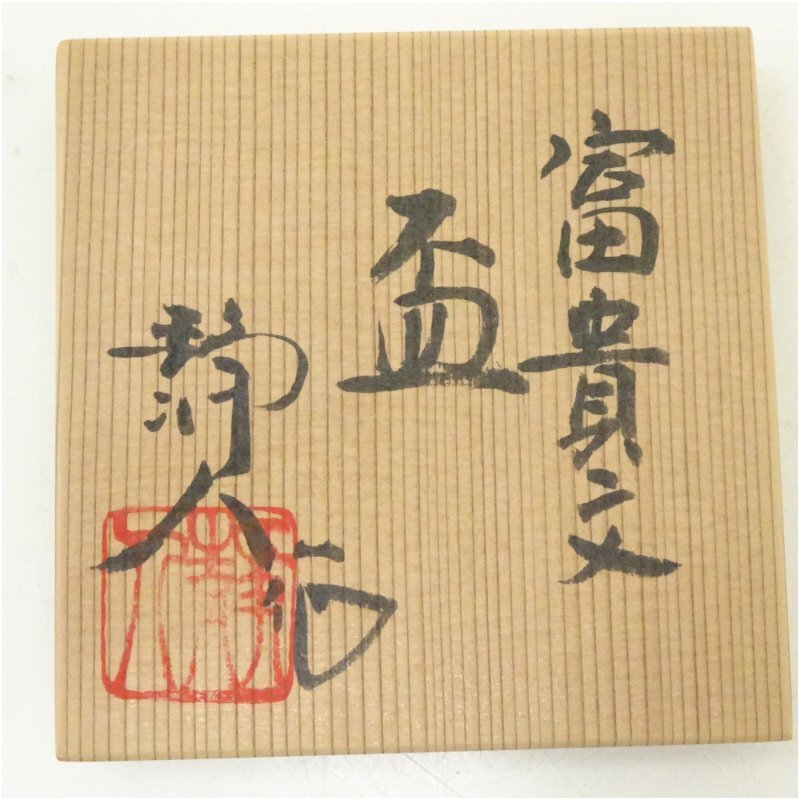 富貴文
盃
静人